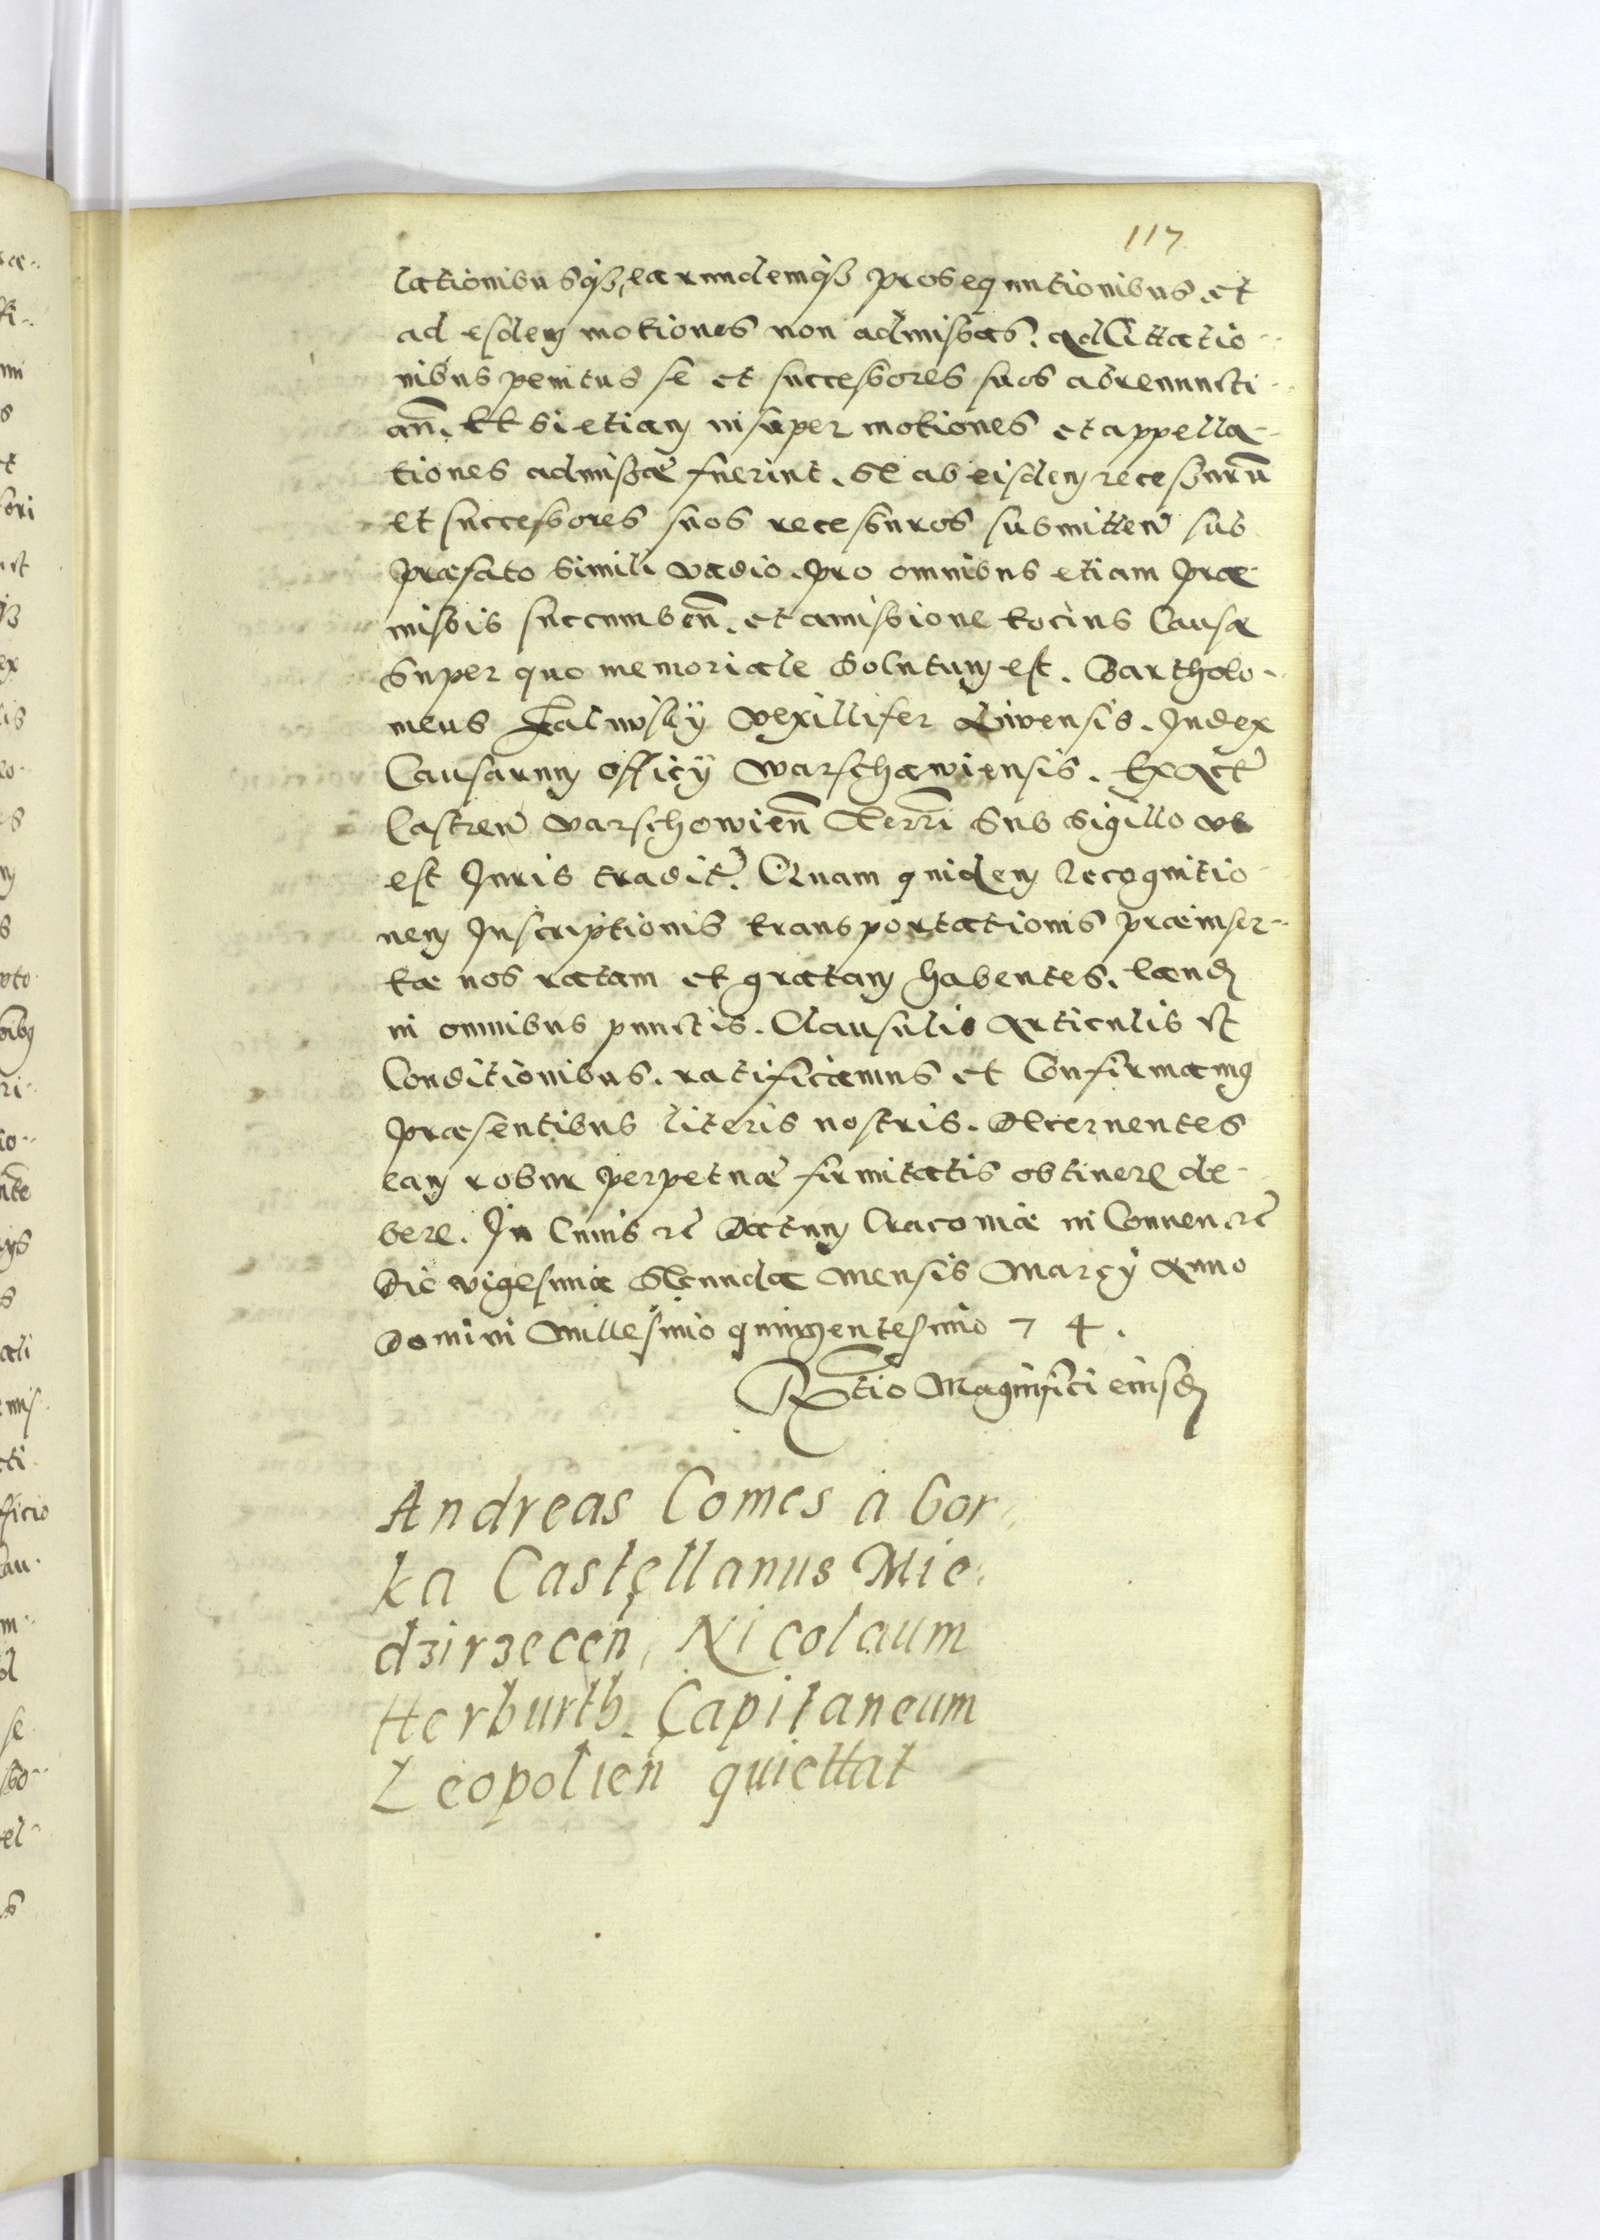 117
lationibusq₃ earundemq₃ prosequutionibus et
ad esdem motiones non admissas. adcittatio-
nibus penitus se et successores suos abrenuncti-
añ. Et si etiam insuper motiones et appella-
tiones admissæ fuerint. Se ab eisdem recessurū
et successores suos recessuros submitten̄ sub
præfato simili vadio. pro omnibus etiam præ-
missis succumbeñ. et amissione tocius causæ
super quo memoriale solutum est. Bartholo-
meus vexillifer Livensis. Judex
Causarum officÿ Warschaviensis. Ex Act̄
Castren̄ Varschowieñ Terrī sub sigillo vt
est Juris tradit̄. Quam quidem Recognitio-
nem Inscriptionis transportationis præinser-
tæ nos ratam et gratam habentes. eand
in omnibus punctis. Clausulis Articulis et
Conditionibus. ratificamus et Confirmamus
præsentibus literis nostris. Decernentes
eam robur perpetuæ firmitatis obtinere de-
bere. In Cuius rē Datum Cracoviæ in Conven. rē
Die vigesima Secunda mensis Marcÿ Anno
Domini Millesimo quingentesimo 7 4.
Rtio Magnifici eiusd
Andreas Comes a Gor-
ka Castellanus Mie-
dzirzeceñ, Nicolaum
Herburth Capitaneum
Leopolieñ quiettat